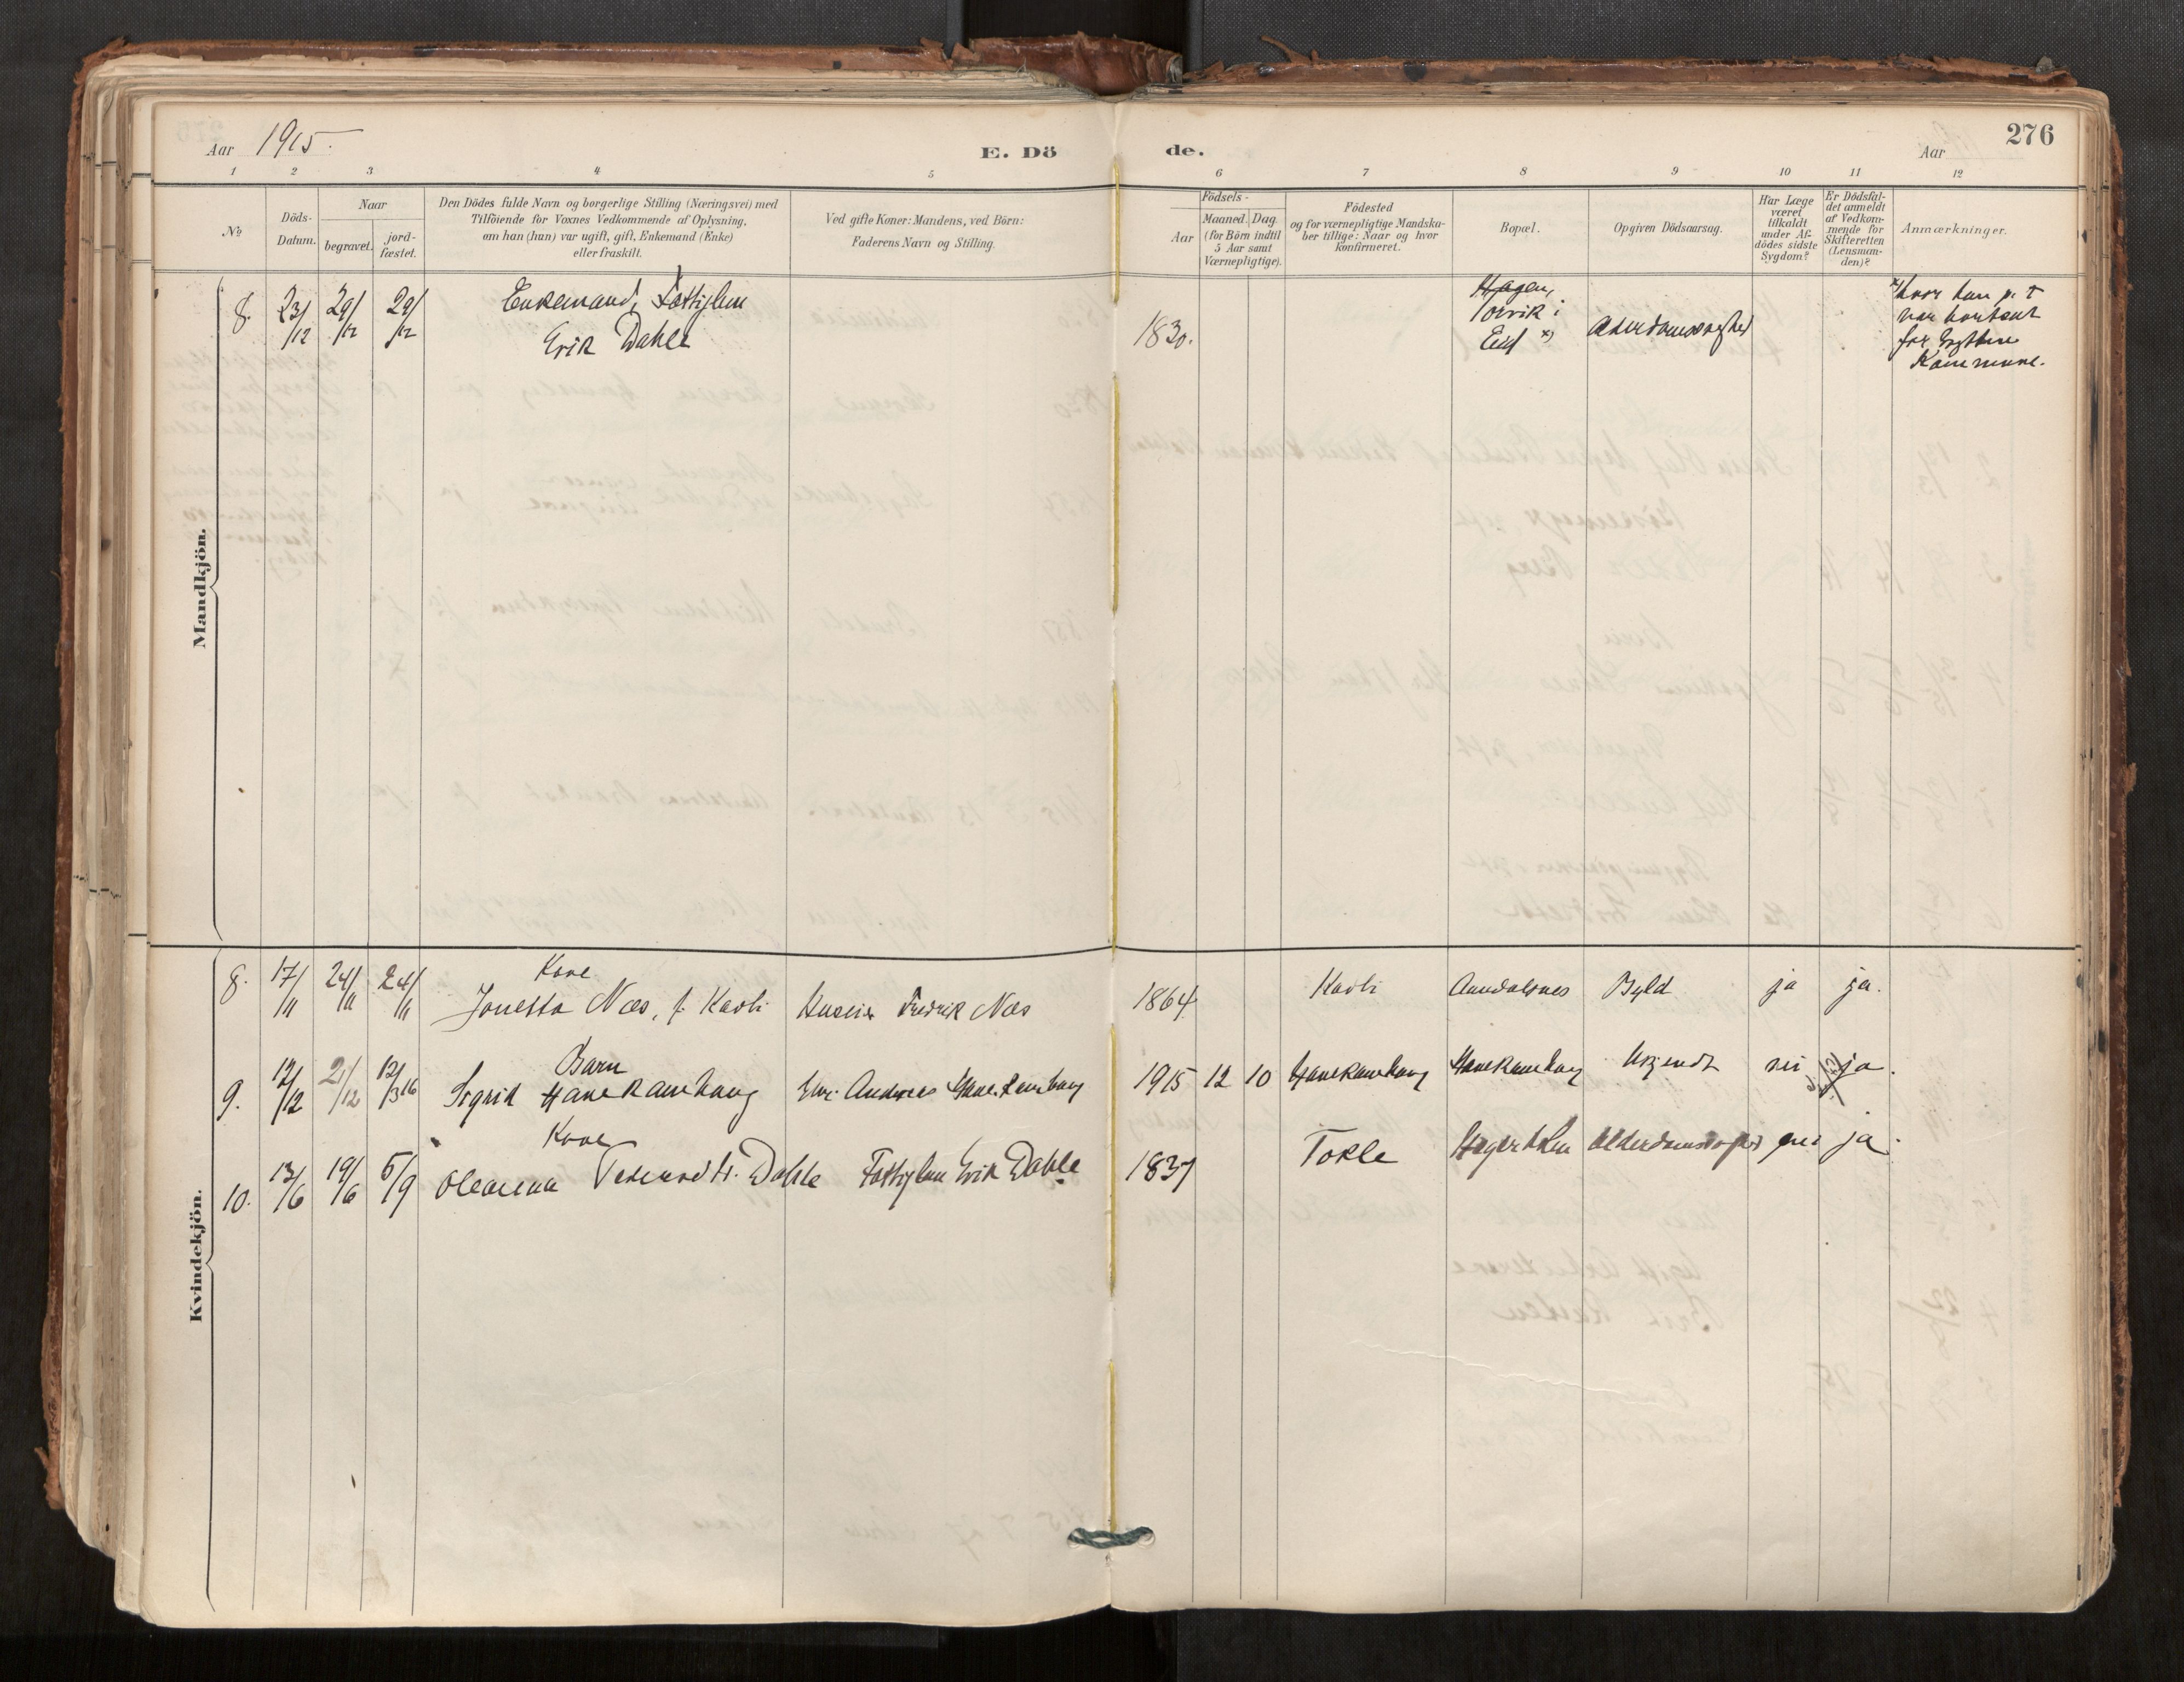 Aar 1915.
E. Dö
de.
Aar
276
1 2 3 4 5 6 7 8 9 10 11 12
No
Döds-
Datum.
Naar
begravet.
jord-
fæstet.
Den Dödes fulde Navn og borgerlige Stilling (Næringsvei) med
Tilföiende for Voxnes Vedkommende af Oplysning,
om han (hun) var ugift, gift, Enkemand (Enke)
eller fraskilt.
Ved gifte Koner: Mandens, ved Börn:
Faderens Navn og Stilling.
Födsels-
Aar
Maaned. Dag
(for Börn indtil
5 Aar samt
Værnepligtige).
Födested
og for værnepligtige Mandska-
ber tillige: Naar og hvor
konfirmeret.
Bopæl.
Opgiven Dödsaarsag.
Har Læge
været
tilkaldt
under Af-
dödes sidste
Sygdom?
Er Dödsfal-
det anmeldt
af Vedkom-
mende for
Skifteretten
(Lensman-
den)?
Anmærkninger.
Mandkjön.
8. 23/12 29/12 29/12
Enkemand, Fattiglem
Erik Dahle
1830.
Torvik i
Eid x)
Alderdomssvaghed
x) hvor han p. t
var bortsat
for Grytten
Kommune.
Kvindekjön.
8. 17/11 24/11 24/11
Kone
Jonetta Næs, f. Kavli
Fredrik Næs
1864
Kavli
Aandalsnes
Byld
ja
ja.
9. 12/12 21/12 12/3 16
Barn
Sigrid Hanekamhaug
Andreas Hanekamhaug
1915 12 10
Hanekamhaug
Hanekamhaug
Ukjendt
nei
ja.
10. 13/6 19/6 5/9
Kone
Dahle
Fattiglem Erik Dahle
1837
Tokle
Alderdomssvaghed
ja.